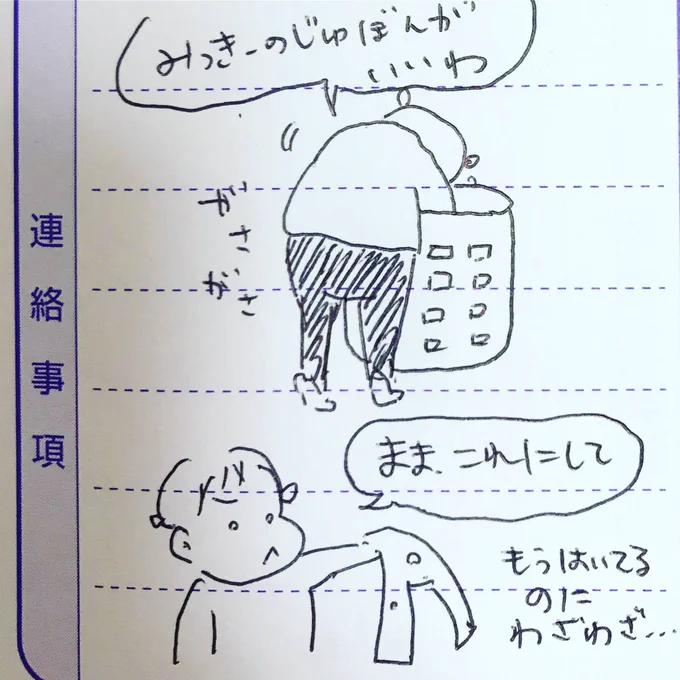 みっきーのじゅぼんが
いいわ
がさがさ
まま、これにして
もうはいてる
のに
わざわざ…
連絡事項